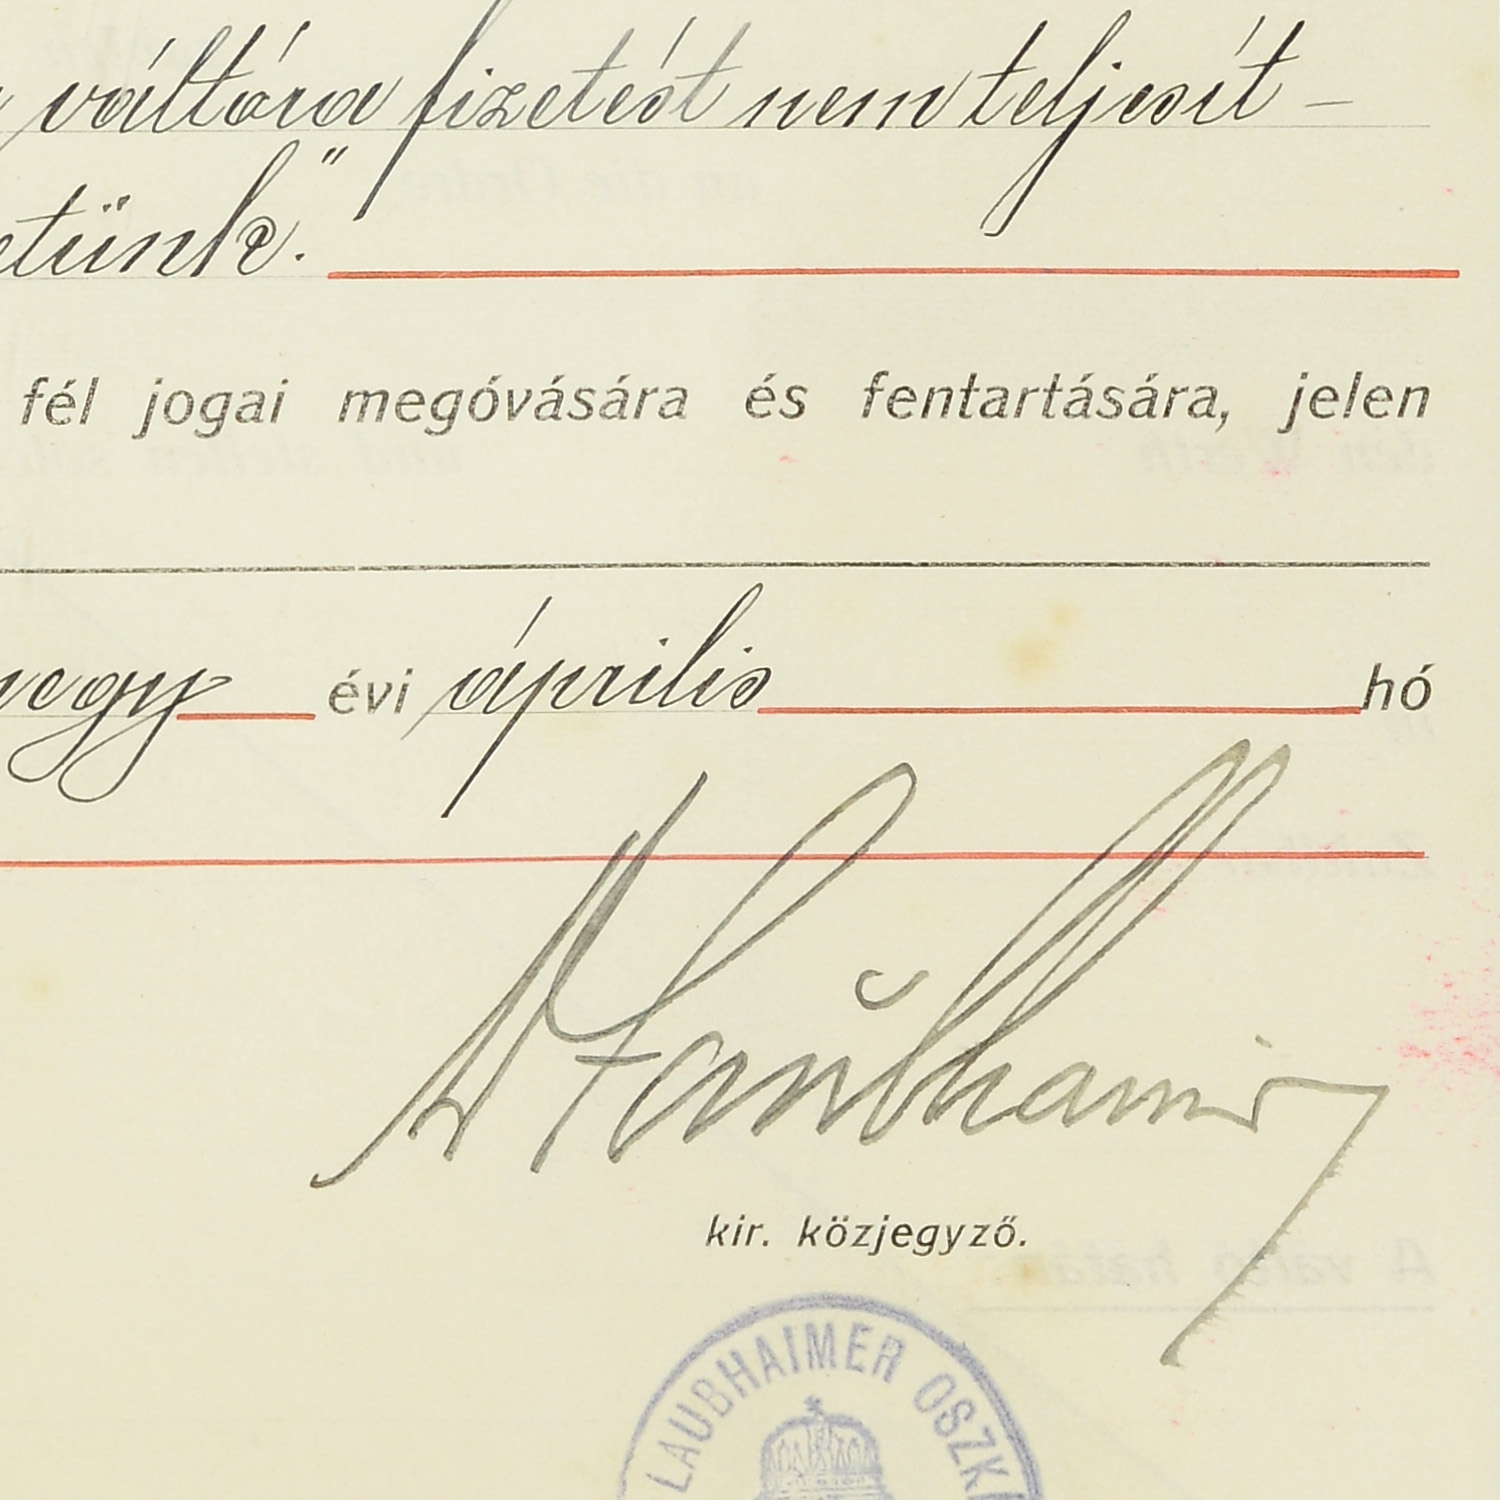 váltóra fizetést nem teljesít –
etünk."
fél jogai megóvására és fentartására, jelen
négy évi április hó
Laubhaimer
kir. közjegyző.
LAUBHAIMER OSZK